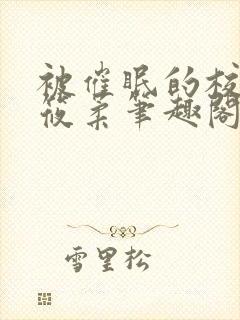 被催眠的校
筱柔笔趣阁
雪里松